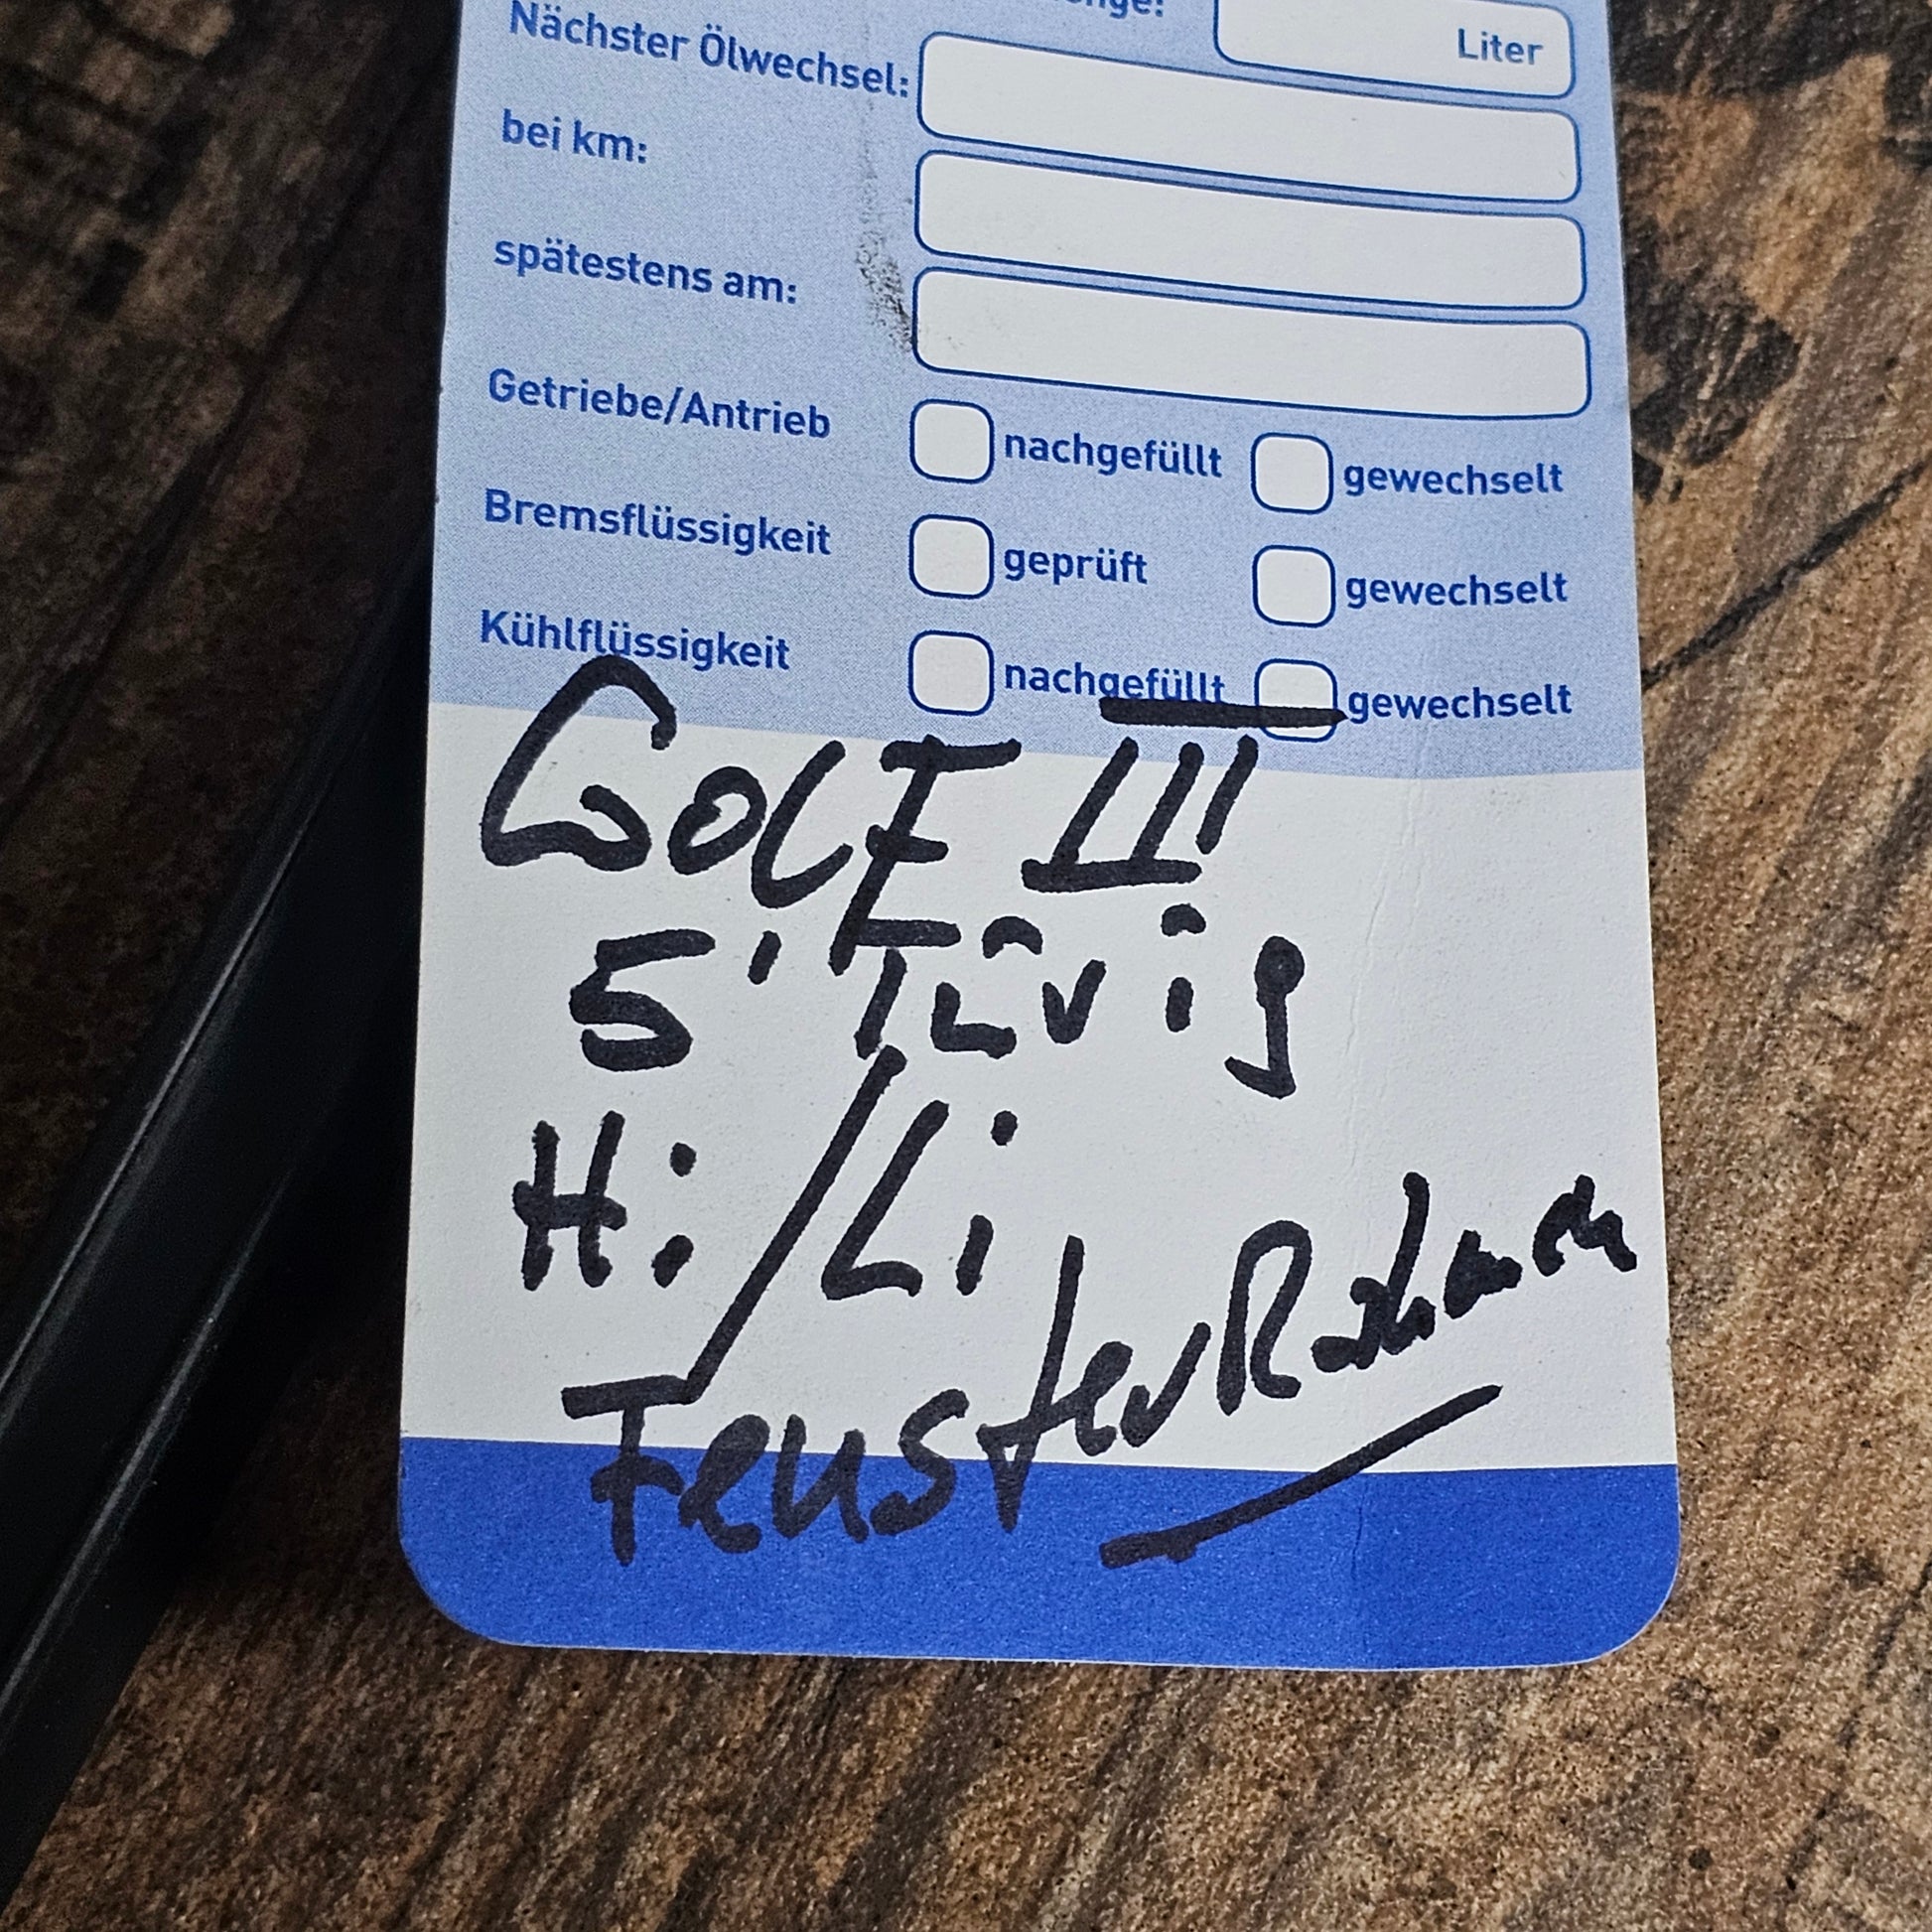 Liter
Nächster Ölwechsel:
bei km:
spätestens am:
Getriebe/Antrieb nachgefüllt gewechselt
Bremsflüssigkeit geprüft gewechselt
Kühlflüssigkeit nachgefüllt gewechselt
GOLF III
5' Tûrig
Hi/Li
FensterRahmen